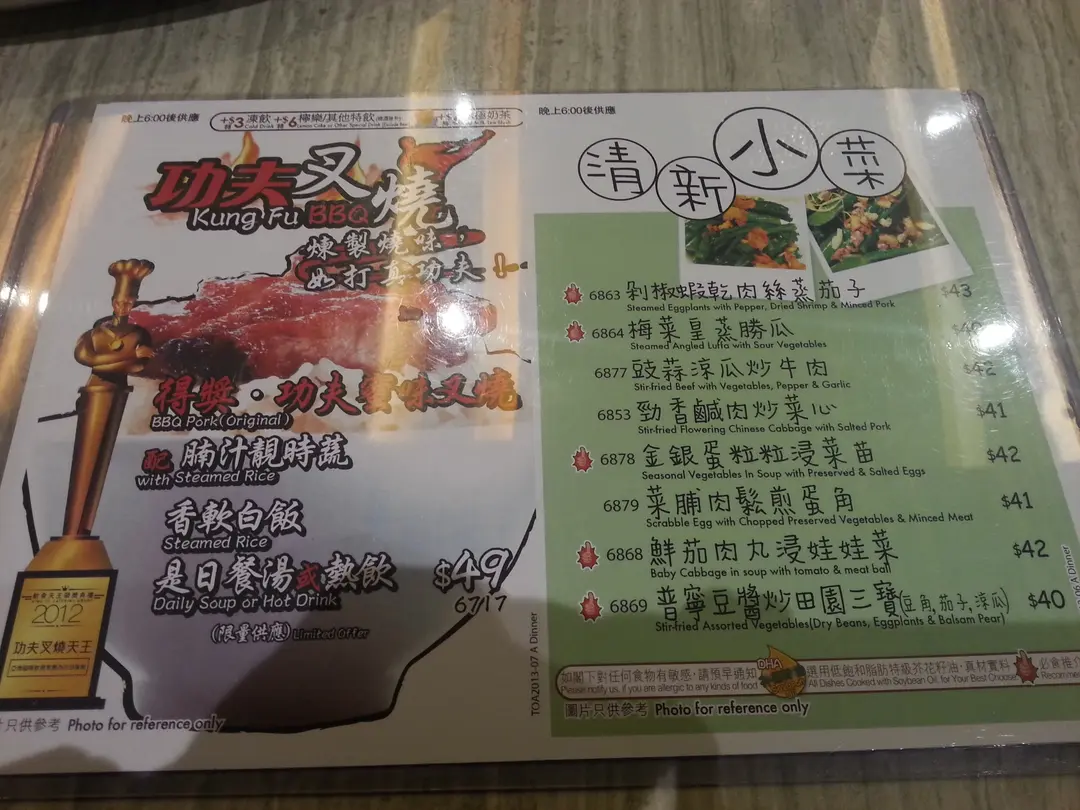 晚上6:00後供應
+$3 凍飲 +$6 檸樂/其他特飲
Cold Drink
功夫叉燒
Kung Fu BBQ
煉製燒味，
如打真功夫！
得獎·功夫蜜味叉燒
BBQ Pork(Original)
配 腩汁靚時蔬
with Steamed Rice
香軟白飯
Steamed Rice
是日餐湯或熱飲 $49
Daily Soup or Hot Drink 6717
(限量供應) Limited Offer
2012
功夫叉燒天王
片只供參考 Photo for reference only
TOA2013-07 A Dinner
晚上6:00後供應
清新小菜
6863 剁椒蝦乾肉絲蒸茄子 $43
Steamed Eggplants with Pepper, Dried Shrimp & Minced Pork
6864 梅菜皇蒸勝瓜
Steamed Angled Luffa with Sour Vegetables
6877 豉蒜涼瓜炒牛肉 $42
Stir-fried Beef with Vegetables, Pepper & Garlic
6853 勁香鹹肉炒菜心 $41
Stir-fried Flowering Chinese Cabbage with Salted Pork
6878 金銀蛋粒粒浸菜苗 $42
Seasonal Vegetables In Soup with Preserved & Salted Eggs
6879 菜脯肉鬆煎蛋角 $41
Scrabble Egg with Chopped Preserved Vegetables & Minced Meat
6868 鮮茄肉丸浸娃娃菜 $42
Baby Cabbage in soup with tomato & meat ball
6869 普寧豆醬炒田園三寶(豆角,茄子,涼瓜) $40
Stir-fried Assorted Vegetables(Dry Beans, Eggplants & Balsam Pear)
如閣下對任何食物有敏感，請預早通知 選用低飽和脂肪特級芥花籽油，真材實料 必會推介
Please notify us, if you are allergic to any kinds of food All Dishes Cooked with Soybean Oil, for Your Best Choose
圖片只供參考 Photo for reference only